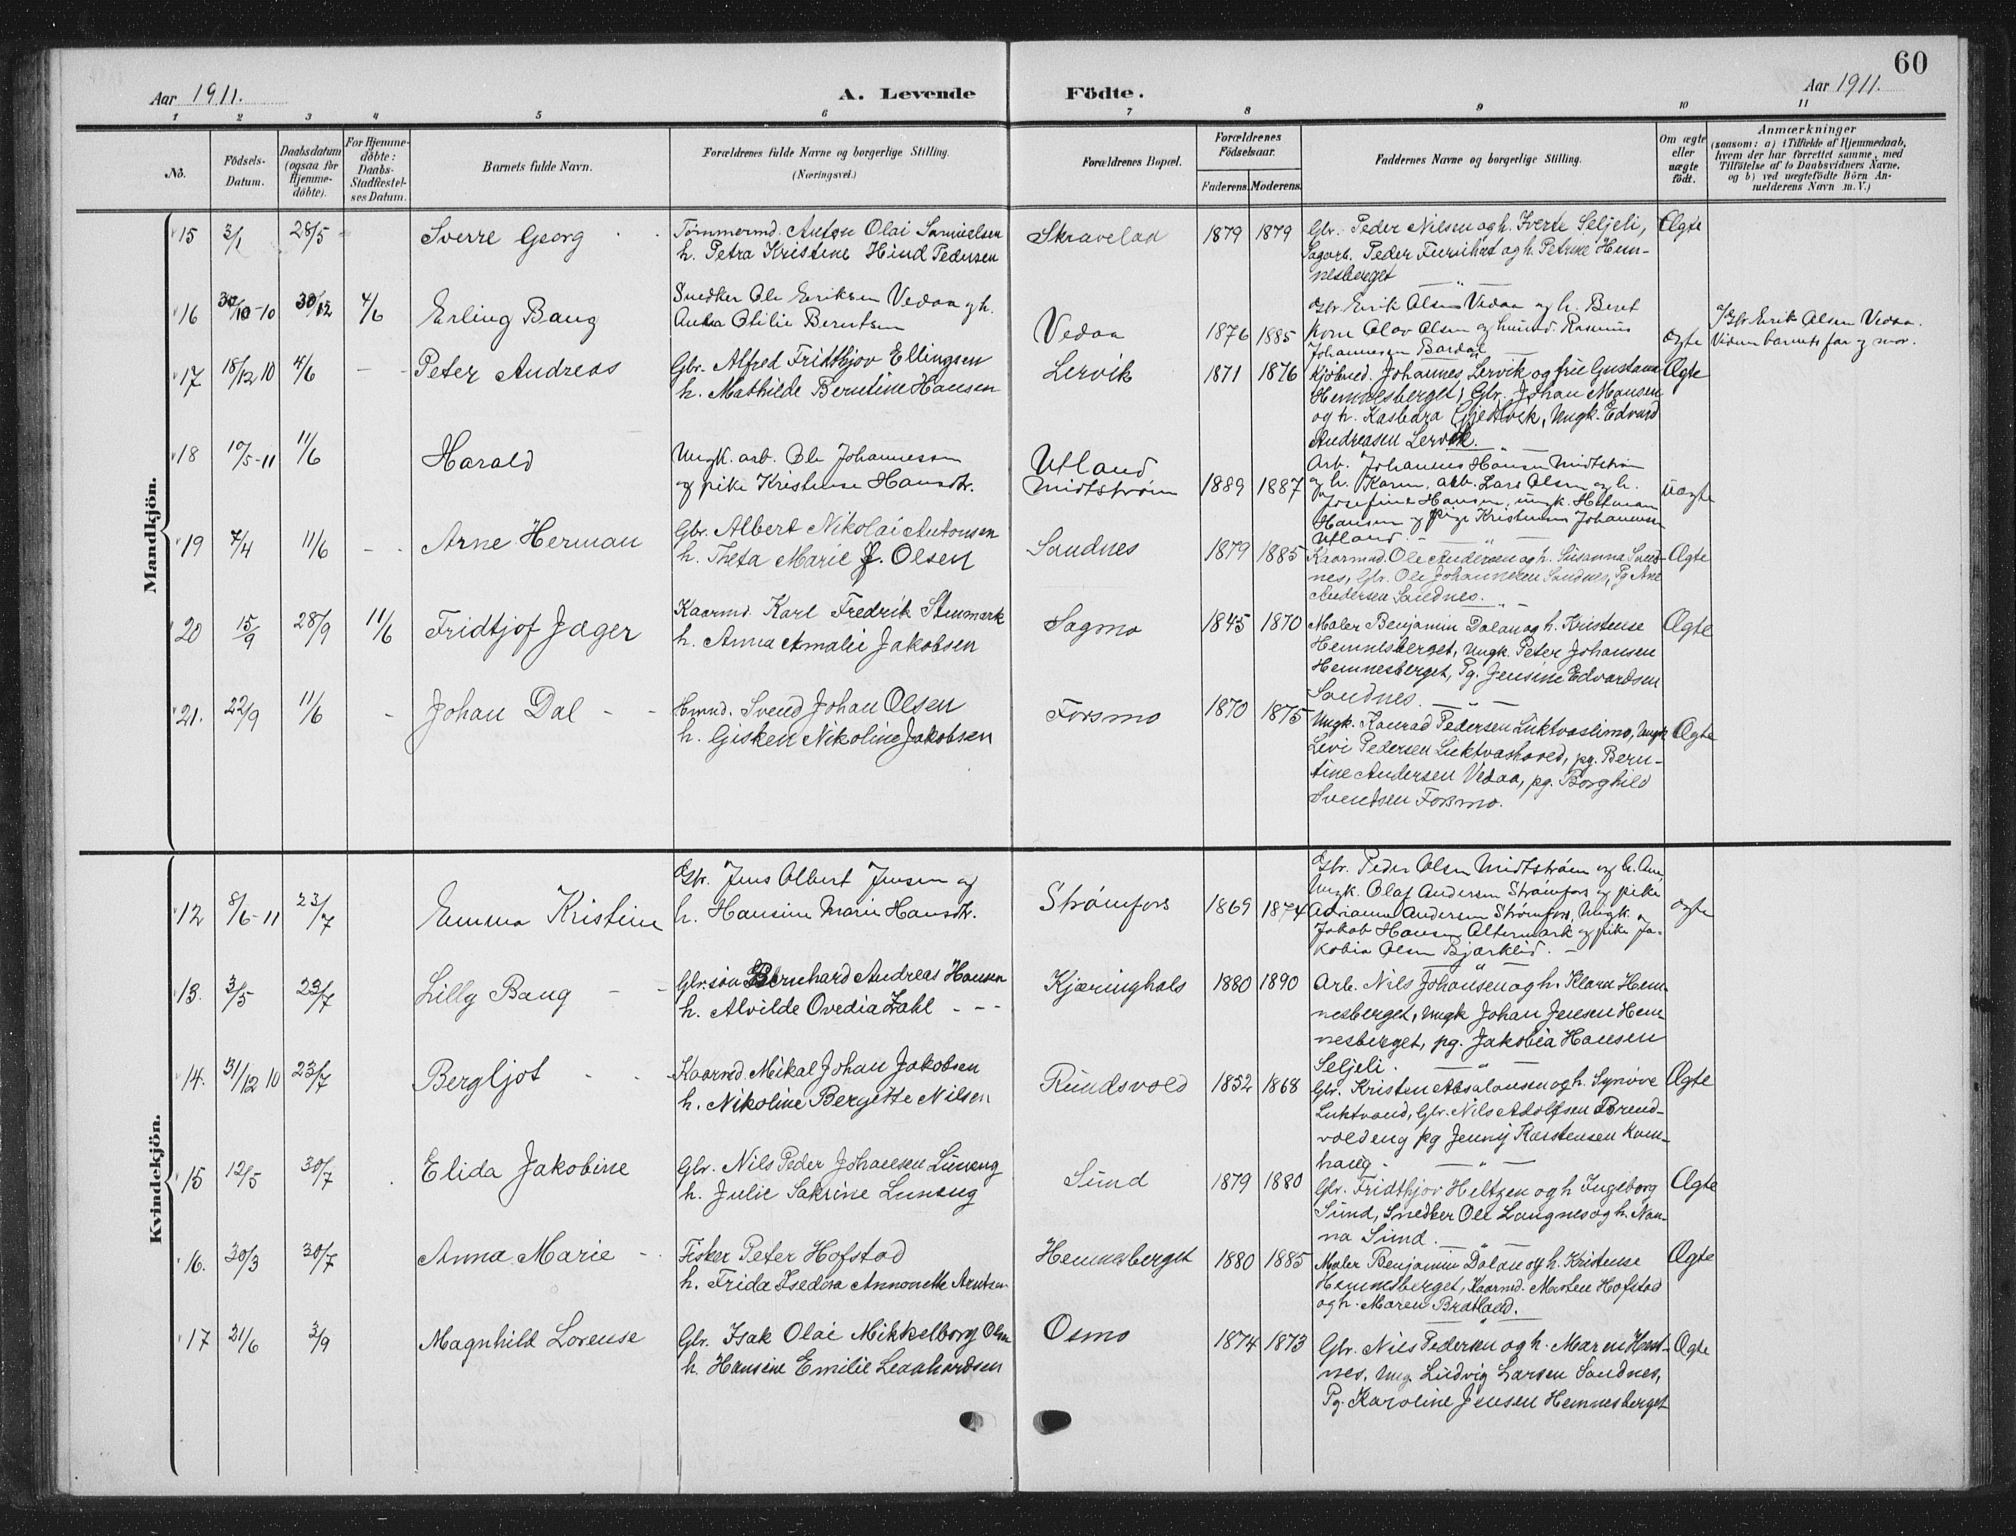 60
Aar 1911. A. Levende Födte. Aar 1911.
1 2 3 4 5 6 7 8 9 10 11
No. Födsels-Datum. Daabsdatum (ogsaa for Hjemmedöbte). For Hjemmedöbte: Daabs-Stadfæstelses Datum. Barnets fulde Navn. Forældrenes fulde Navne og borgerlige Stilling. (Næringsvei.) Forældrenes Bopæl. Forældrenes Födselsaar. Faderens. Moderens. Faddernes Navne og borgerlige Stilling. Om ægte eller uægte födt. Anmærkninger (saasom: a) i Tilfælde af Hjemmedaab, hvem der har forrettet samme, med Tilföielse af to Daabsvidners Navne. og b) ved uægtefödte Börn Anmelderens Navn m. V.)
Mandkjön.
15 3/1 28/5 Sverre Georg Tømmermd. Anton Olai Samuelsen
h. Petra Kristine Hind Pedersen
Skravelaa 1879 1879
Gbr. Peder Nilsen og h. Iverte Seljeli,
Sagarb. Peder Furuhat og h. Petrine Hem-
nesberget
Ægte
16 30/10-10 30/12 4/6 Erling Bang
Snedker Ole Eriksen Vedaa og h.
Anna Otilie Berntsen
Vedaa 1876 1885
Gbr. Erik Olsen Vedaa og h. Beret
Korn Olav Olsen og Rasmus
Johannesen Bardal
ægte
Gbr. Erik Olsen Vedaa.
Vidner barnets far og mor.
17 18/12 10 4/6 Peter Andreas
Gbr. Alfred Fridthjov Ellingsen
h. Mathilde Berntine Hansen
Lervik 1871 1876
Kjøbmd. Johannes Lervik og frue Gustava
Hemnesberget, Gbr. Johan Mansen
og h. Kasbara, Ungk. Edvard
Andreasen Lervik.
Ægte
18 10/5-11 11/6 Harald
Ungk. arb. Ole Johannessen
og pike Kristense Hansdtr.
Utland
Midtstrøm
1889 1887
Arb. Johannes Hansen Midtstrøm
og h. Karen, arb. Lars Olsen og h.
Josefine Hansen, ungk. Hetman
Hansen og pige Kristense Johannesen
Utland.
uægte
19 7/4 11/6 Arne Herman
Gbr. Albert Nikolai Antonsen
h. Theta Marie J. Olsen
Sandnes 1879 1885
Kaarmd. Ole Andersen og h. Susanna Sand-
nes, Gbr. Ole Johannesen Sandnes, Pg. Ane
Andersen Sandnes.
Ægte
20 15/9 28/9 11/6 Fridtjof Jæger
Kaarmd. Karl Fredrik Stenmark
h. Anna Amalie Jakobsen
Sagmo 1845 1870
Maler Benjamin Dalan og h. Kristense
Hemnesberget, Ungk. Peter Johansen
Hemnesberget, Pg. Jensine Edvardsen
Sandnes.
Ægte
21. 22/9 11/6 Johan Dal
Hmnd. Svend Johan Olsen
h. Gisken Nikoline Jakobsen
Forsmo 1870 1875
Ungk. Konrad Pedersen Luktvaslimo, Ungk
Levi Pedersen Luktvashoved, pg. Bern-
tine Andersen Vedaa, pg. Borghild
Svendsen Forsmo.
Ægte
Kvindekjön.
12 8/6-11 23/7 Emma Kristine
Gbr. Jens Albert Jensen og
h. Hansine Marie Hansdtr.
Strømfors 1869 1874
Gbr. Peder Olsen Midtstrøm og h. An,
Ungk. Olaf Andersen Strømfors og pike
Adrianna Andersen Strømfors, Ungk.
Jakob Hansen Altermark og pike Ja-
kobia Olsen Bjærklid.
ægte
13. 3/5 23/7 Lilly Bang
Gbr. søn Bernhard Andreas Hansen
h. Alvilde Ovedia Zahl
Kjæringhals 1880 1890
Arb. Nils Johansen og h. Klara Hem-
nesberget, Ungk Johan Jensen Hem-
nesberget, pg. Jakobia Hansen
Seljeli.
14. 31/12 10 23/7 Bergljot
Kaarmd Mikal Johan Jakobsen
h. Nikoline Bergette Nilsen
Rundsvold 1852 1868
Gbr. Kristen Absalonsen og h. Synöve
Luktvand, Gbr. Nils Adolfsen Brend-
voldeng pg Jenny Karstensen Kom-
haug.
Ægte
15 12/5 30/7 Elida Jakobine
Gbr. Nils Peder Johansen Luneng
h. Julie Sakrine Luneng
Sund 1879 1880
Gbr. Fridthjov Heltzen og h Ingeborg
Sund, Snedker Ole Langnes og h. Nan-
na Sund.
Ægte
16. 30/3 30/7 Anna Marie
Fisker Peter Hofstad
h. Frida Isedora Annonette Arntsen
Hemnesberget 1880 1885
Maler Benjamin Dalan og h. Kristense
Hemnesberget, Kaarmd. Morten Hofstad
og h. Maren Bratland.
Ægte
17 21/6 3/9 Magnhild Lorense
Gbr. Isak Olai Mikkelborg Olsen
h. Hansine Emilie Leonhardsen
Osmo 1874 1873
Gbr. Nils Pedersen og h. Maren Hest-
nes, Ung. Ludvig Larsen Sandnes,
Pg. Karoline Jensen Hemnesberget
Ægte